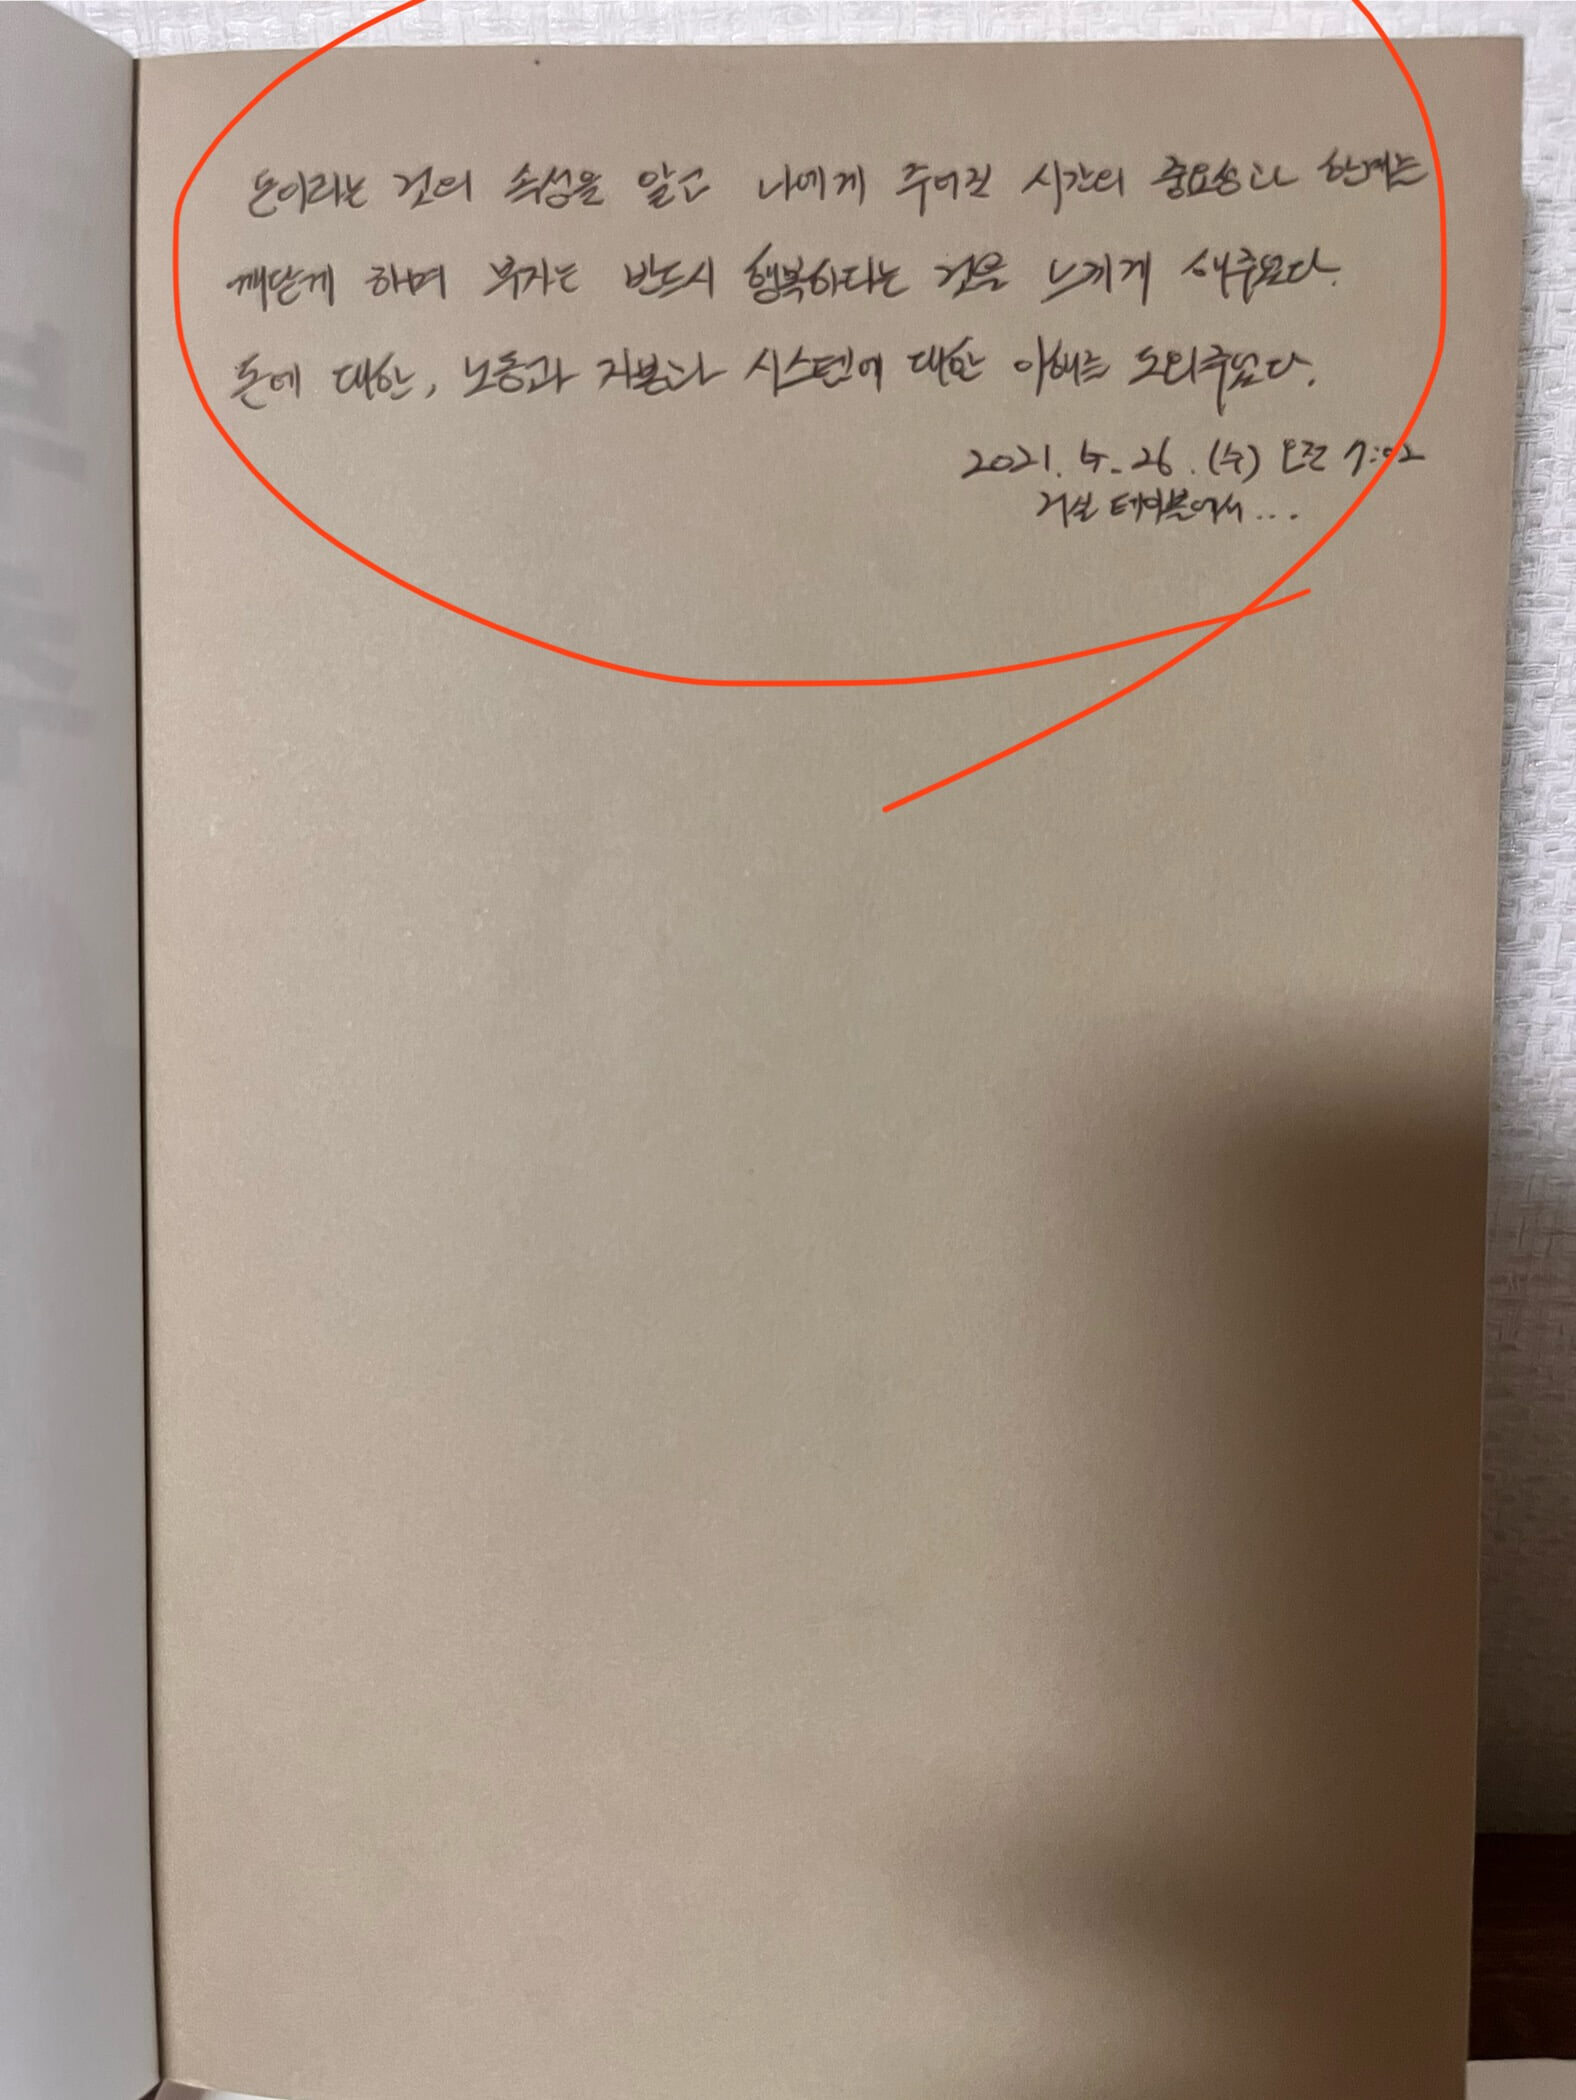 돈이라는 것의 속성을 알고 나에게 주어진 시간의 중요성과 한계를
깨닫게 하며 부자는 반드시 행복하다는 것을 느끼게 해주었다.
돈에 대한, 노동과 자본과 시스템에 대한 이해를 도와주었다.
2021. 5. 26. (수) 오전 7:02
거실 테이블에서...